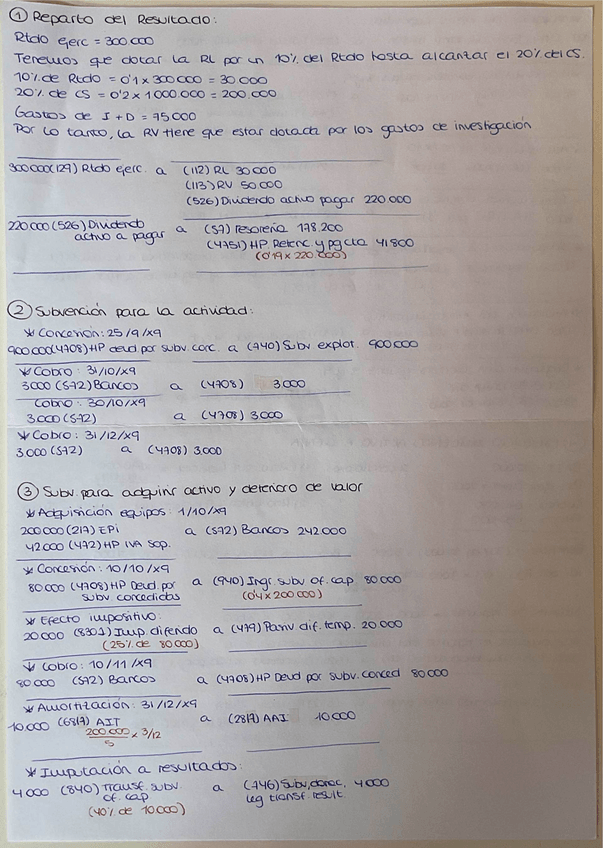 ① Reparto del Resultado:
Rtdo ejerc = 300 000
Tenemos que dotar la RL por un 10% del Rtdo hasta alcanzar el 20% del CS.
10% de Rtdo = 0'1 x 300 000 = 30 000
20% de CS = 0'2 x 1 000.000 = 200.000
Gastos de I + D = 75 000
Por lo tanto, la RV tiene que estar dotada por los gastos de investigación
300 000 (129) Rtdo ejerc. a (112) RL 30 000
(113) RV 50 000
(526) Dividendo activo pagar 220 000
220 000 (526) Dividendo activo a pagar a (57) Tesorería 178.200
(4751) HP Retenc. y pg cta 41 800
(0'19 x 220.000)
② Subvención para la actividad:
* Concesión: 25/9/x9
900 000 (4708) HP deud por subv. conc. a (740) Subv explot. 900 000
* Cobro: 31/10/x9
3000 (572) Bancos a (4708) 3 000
Cobro: 30/10/x9
3.000 (572) a (4708) 3.000
* Cobro: 31/12/x9
3 000 (572) a (4708) 3.000
③ Subv. para adquirir activo y deterioro de valor
* Adquisición equipos: 1/10/x9
200 000 (217) EPi a (572) Bancos 242 000
42 000 (472) HP IVA Sop.
* Concesión: 10/10/x9
80 000 (4708) HP Deud por subv concedidas a (940) Ingr. subv of. cap 80 000
(0'4 x 200 000)
* Efecto impositivo:
20 000 (8301) Imp diferido a (479) Pasiv dif. temp. 20 000
(25% de 80 000)
* Cobro: 10/11/x9
80 000 (572) Bancos a (4708) HP Deud por subv. conced 80 000
* Amortización: 31/12/x9
10 000 (6817) AIT a (2817) AAI 10 000
200.000 / 5 x 3/12
* Imputación a resultados:
4 000 (840) Transf. subv. of. cap a (746) Subv, donac. leg transf result. 4 000
(40% de 10 000)